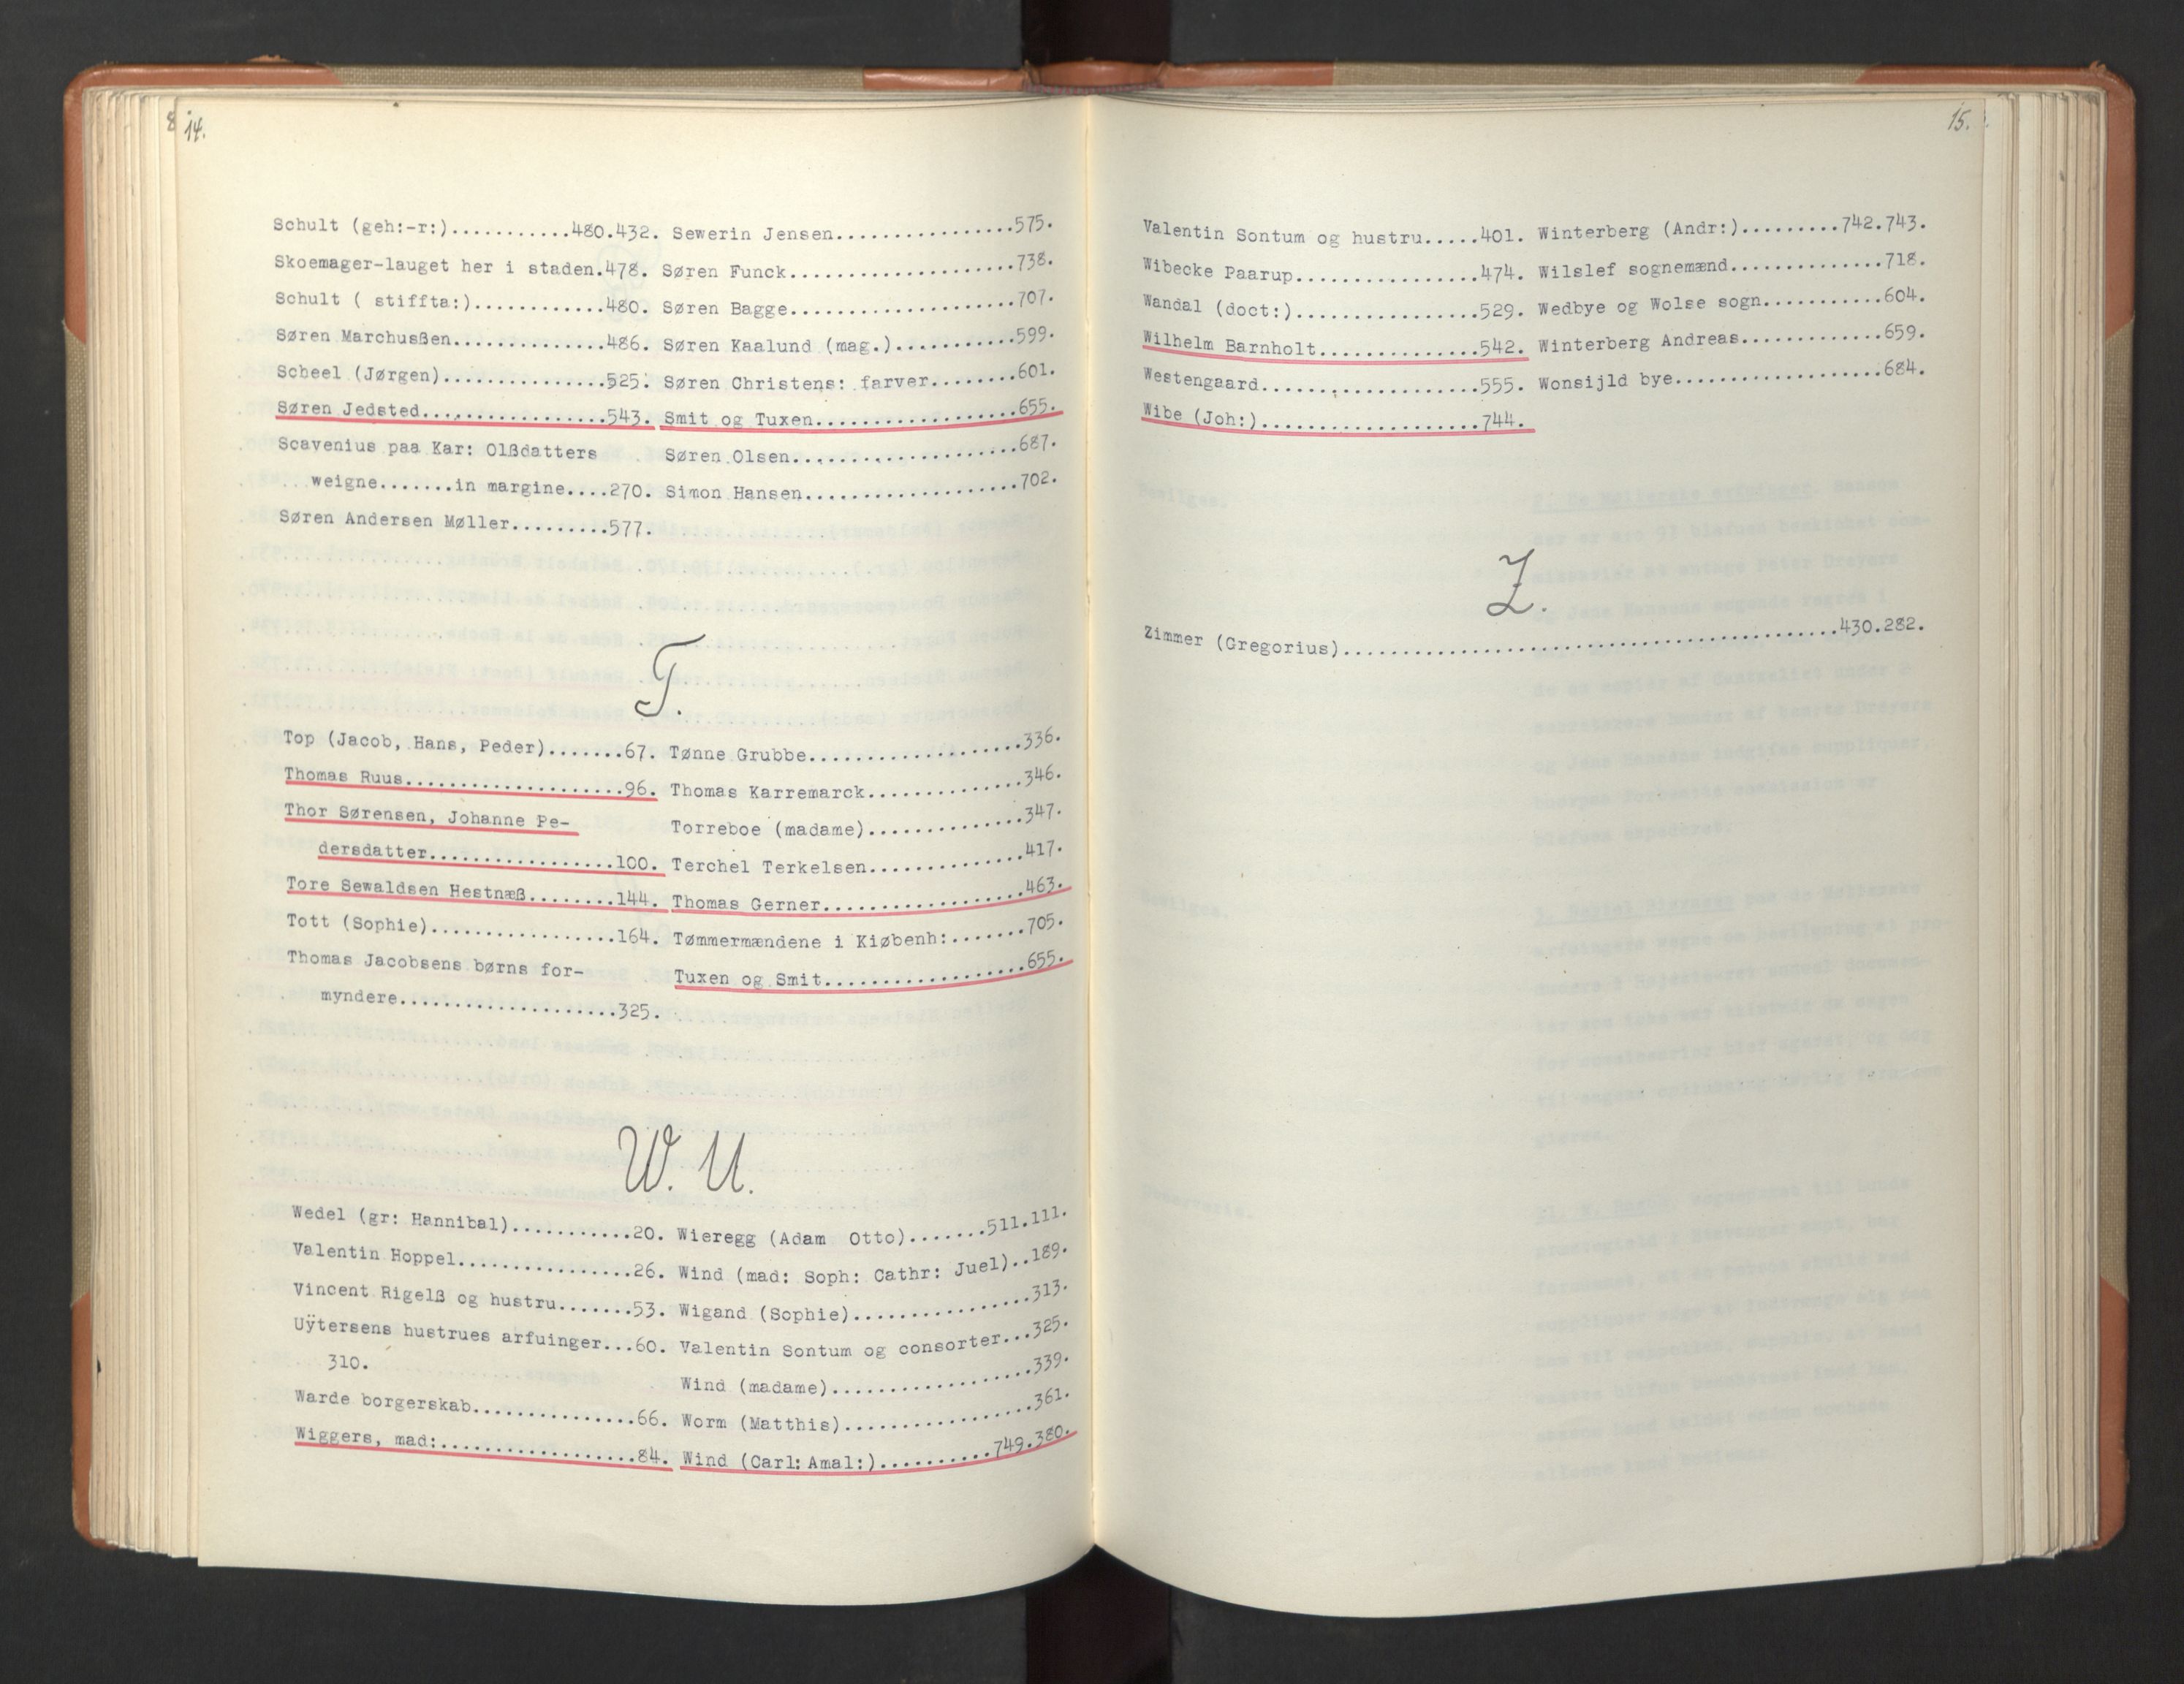 14.
Schult (geh:-r:)...........480.432.
Skoemager-lauget her i staden.478.
Schult ( stiffta:)............480.
Søren Marchusßen..............486.
Scheel (Jørgen)...............525.
Søren Jedsted.................543.
Scavenius paa Kar: Olßdatters
weigne.......in margine....270.
Søren Andersen Møller.........577.
Sewerin Jensen................575.
Søren Funck...................738.
Søren Bagge...................707.
Søren Kaalund (mag.)...........599.
Søren Christens: farver........601.
Smit og Tuxen.................655.
Søren Olsen...................687.
Simon Hansen..................702.
T.
Top (Jacob, Hans, Peder).......67.
Thomas Ruus....................96.
Thor Sørensen, Johanne Pe-
dersdatter.................100.
Tore Sewaldsen Hestnæß........144.
Tott (Sophie).................164.
Thomas Jacobsens børns for-
myndere....................325.
Tønne Grubbe..................336.
Thomas Karremarck.............346.
Torreboe (madame).............347.
Terchel Terkelsen.............417.
Thomas Gerner.................463.
Tømmermændene i Kiøbenh:.......705.
Tuxen og Smit.................655.
W. U.
Wedel (gr: Hannibal)...........20.
Valentin Hoppel................26.
Vincent Rigelß og hustru.......53.
Uÿtersens hustrues arfuinger...60.
310.
Warde borgerskab...............66.
Wiggers, mad:..................84.
Wieregg (Adam Otto).......511.111.
Wind (mad: Soph: Cathr: Juel)..189.
Wigand (Sophie)...............313.
Valentin Sontum og consorter...325.
Wind (madame).................339.
Worm (Matthis)................361.
Wind (Carl: Amal:)..........749.380.
15.
Valentin Sontum og hustru.....401.
Wibecke Paarup................474.
Wandal (doct:)................529.
Wilhelm Barnholt..............542.
Westengaard...................555.
Wibe (Joh:)...................744.
Winterberg (Andr:).........742.743.
Wilslef sognemænd..............718.
Wedbye og Wolse sogn...........604.
Winterberg Andreas.............659.
Wonsijld bye...................684.
Z.
Zimmer (Gregorius)..........................................430.282.